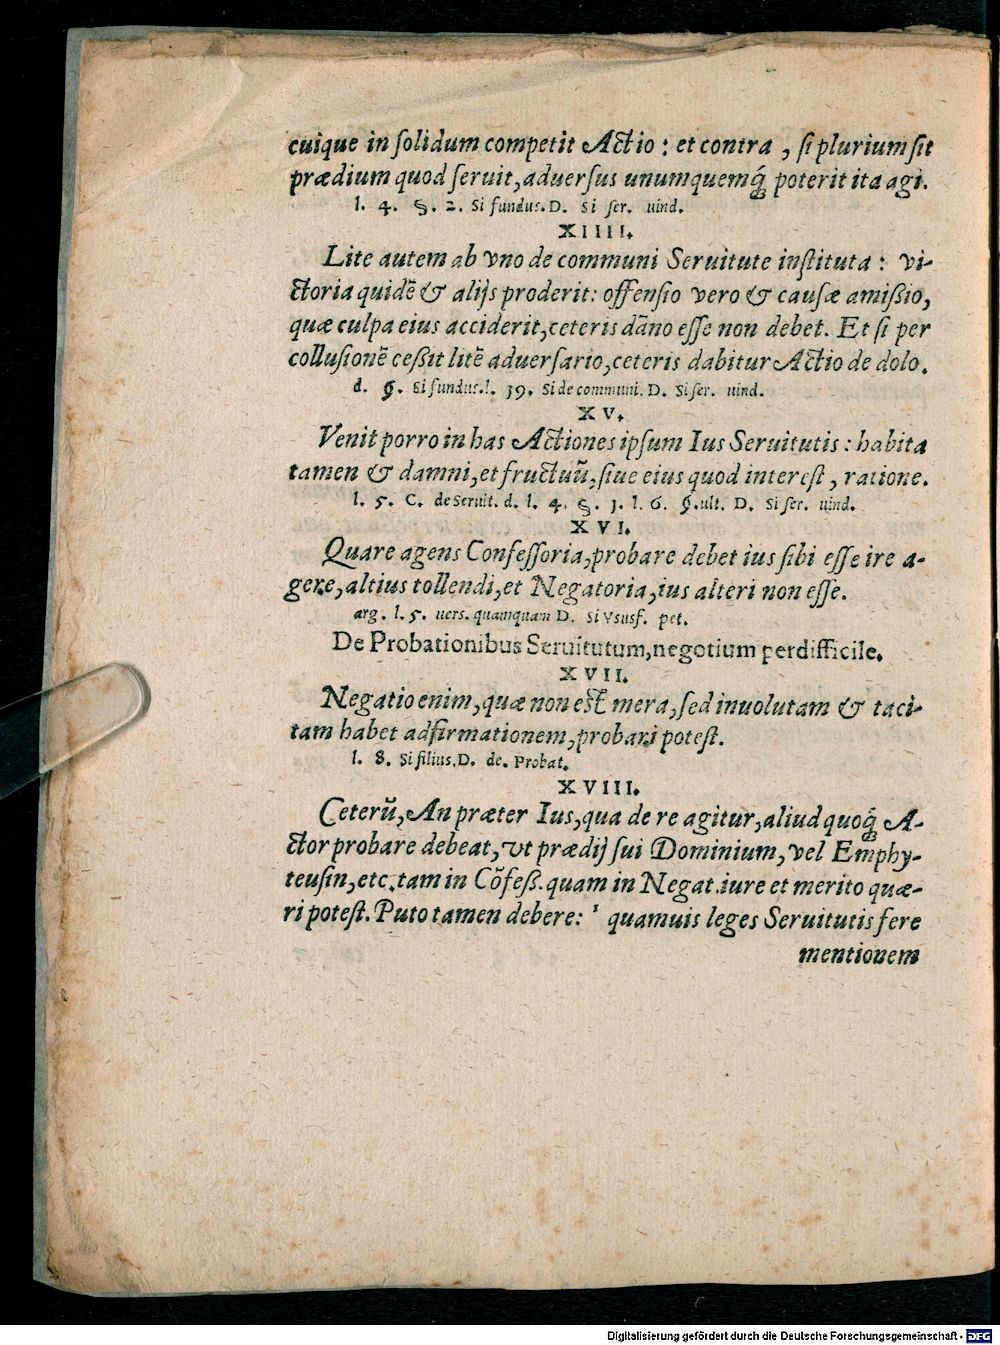 cuique in ſolidum competit Actio : et contra , ſi plurium ſit
prædium quod ſeruit, aduerſus unumquemq́ poterit ita agi.
l. 4. §. 2. Si fundus. D. Si ſer. uind.
XIIII.
Lite autem ab vno de communi Seruitute inſtituta : vi-
ctoria quidẽ & alijs proderit: offenſio vero & cauſæ amißio,
quæ culpa eius acciderit, ceteris dãno eſſe non debet. Et ſi per
colluſionẽ ceßit litẽ aduerſario, ceteris dabitur Actio de dolo.
d. §. Si fundus. l. 19. Si de communi. D. Si ſer. uind.
XV.
Venit porro in has Actiones ipſum Ius Seruitutis : habita
tamen & damni, et fructuũ, ſiue eius quod intereſt , ratione.
l. 5. C. de Seruit. d. l. 4. §. 1. l. 6. §. ult. D. Si ſer. uind.
XVI.
Quare agens Confeſſoria, probare debet ius ſibi eſſe ire a-
gere, altius tollendi, et Negatoria, ius alteri non eſſe.
arg. l. 5. uers. quamquam D. Si Vsusf. pet.
De Probationibus Seruitutum, negotium perdifficile.
XVII.
Negatio enim, quæ non eſt mera, ſed inuolutam & taci-
tam habet adfirmationem, probari poteſt.
l. 8. Si filius. D. de. Probat.
XVIII.
Ceterũ, An præter Ius, qua de re agitur, aliud quoq́ A-
ctor probare debeat, vt prædij ſui Dominium, vel Emphy-
teuſin, etc. tam in Cõfeß. quam in Negat. iure et merito quæ-
ri poteſt. Puto tamen debere: ¹ quamuis leges Seruitutis fere
mentionem
Digitalisierung gefördert durch die Deutsche Forschungsgemeinschaft - DFG